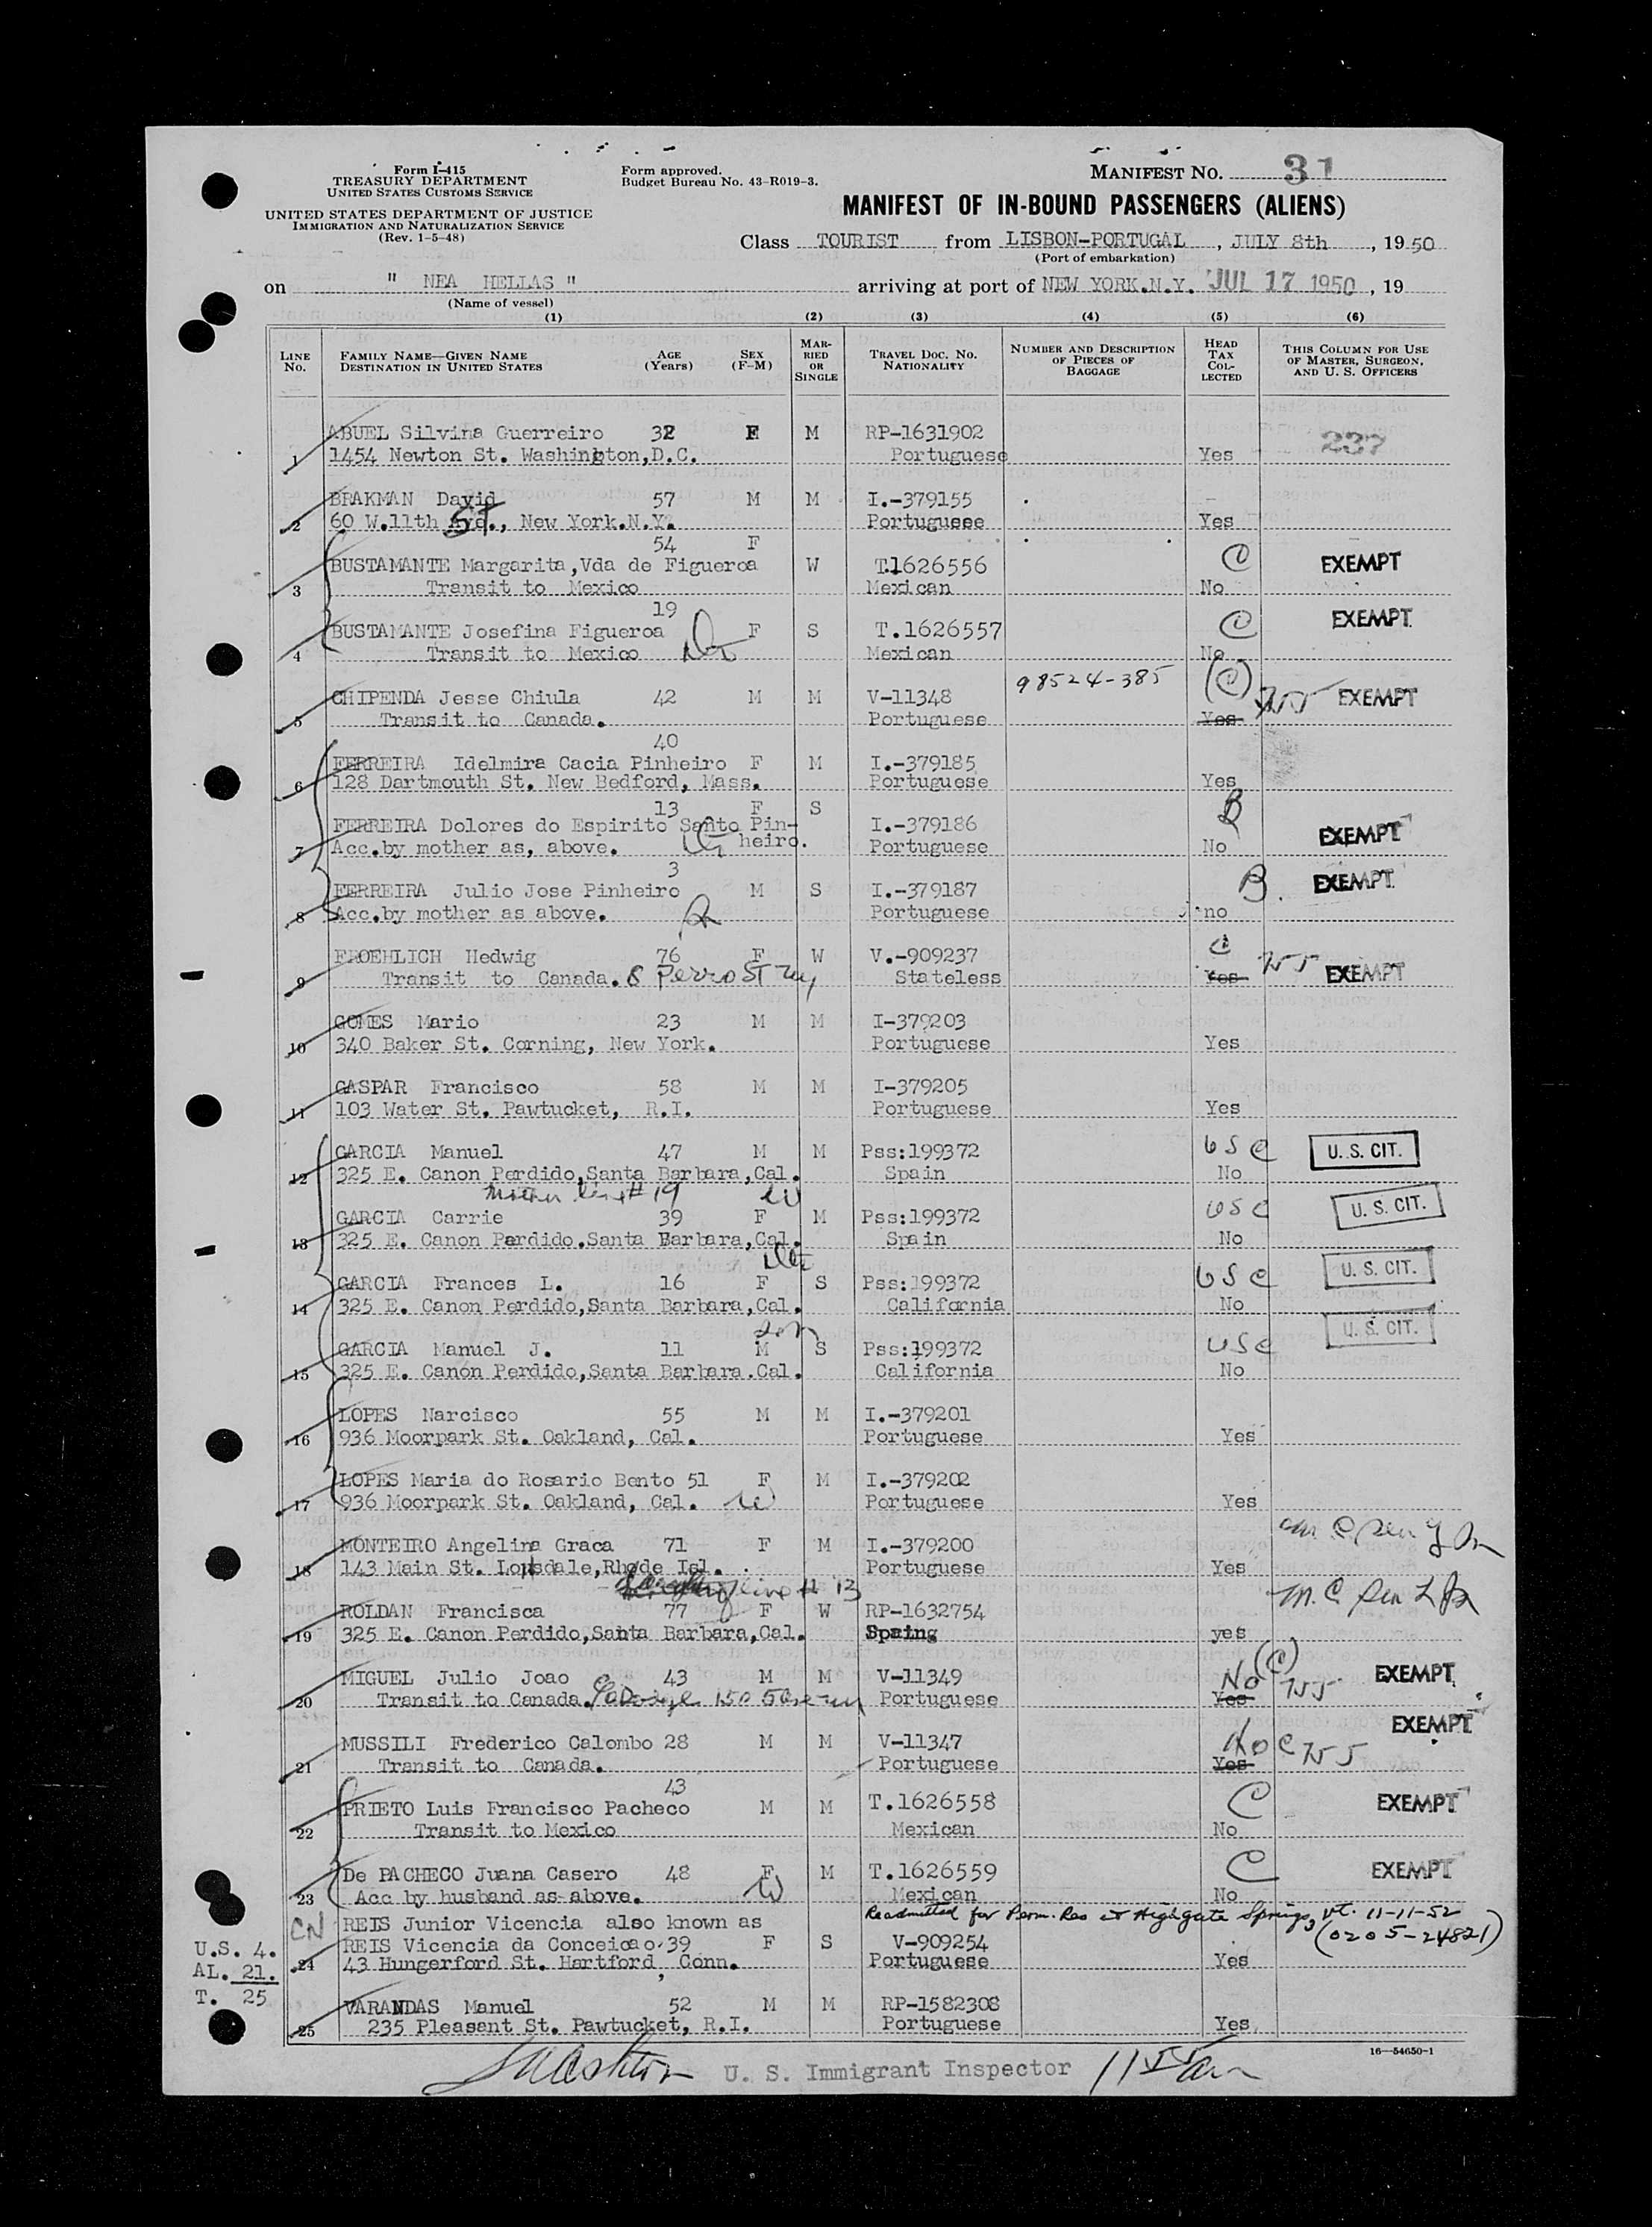 Form I-415
TREASURY DEPARTMENT
UNITED STATES CUSTOMS SERVICE
UNITED STATES DEPARTMENT OF JUSTICE
IMMIGRATION AND NATURALIZATION SERVICE
(Rev. 1-5-48)
Form approved.
Budget Bureau No. 43-R019-3.
MANIFEST NO. 31
MANIFEST OF IN-BOUND PASSENGERS (ALIENS)
Class TOURIST from LISBON-PORTUGAL, JULY 8th, 19 50
(Port of embarkation)
on " NEA HELLAS " arriving at port of NEW YORK.N.Y. JUL 17 1950, 19
(Name of vessel)
(1) (2) (3) (4) (5) (6)
LINE NO. FAMILY NAME—GIVEN NAME DESTINATION IN UNITED STATES AGE (Years) SEX (F-M) MARRIED OR SINGLE TRAVEL DOC. NO. NATIONALITY NUMBER AND DESCRIPTION OF PIECES OF BAGGAGE HEAD TAX COLLECTED THIS COLUMN FOR USE OF MASTER, SURGEON, AND U. S. OFFICERS
ABUEL Silvina Guerreiro 32 F M RP-1631902 237
1 1454 Newton St. Washington,D.C. Portuguese Yes
BRAKMAN David 57 M M I.-379155
2 60 W.11th St., New York.N.Y. Portuguese Yes
54 F
BUSTAMANTE Margarita,Vda de Figueroa W T.1626556 C EXEMPT
3 Transit to Mexico Mexican No
19
BUSTAMANTE Josefina Figueroa F S T.1626557 C EXEMPT
4 Transit to Mexico Mexican No
98524-385
CHIPENDA Jesse Chiula 42 M M V-11348 (C) EXEMPT
5 Transit to Canada. Portuguese Yes
40
FERREIRA Idelmira Cacia Pinheiro F M I.-379185
6 128 Dartmouth St. New Bedford, Mass. Portuguese Yes
13 F S B
FERREIRA Dolores do Espirito Santo Pin- I.-379186 EXEMPT
heiro.
7 Acc.by mother as, above. Portuguese No
3
FERREIRA Julio Jose Pinheiro M S I.-379187 B. EXEMPT
8 Acc.by mother as above. Portuguese no
FROEHLICH Hedwig 76 F W V.-909237 C
9 Transit to Canada. Stateless Yes EXEMPT
GOMES Mario 23 M M I-379203
10 340 Baker St. Corning, New York. Portuguese Yes
GASPAR Francisco 58 M M I-379205
11 103 Water St. Pawtucket, R.I. Portuguese Yes
GARCIA Manuel 47 M M Pss:199372 USC U. S. CIT.
12 325 E. Canon Perdido,Santa Barbara,Cal. Spain No
Mother line # 19 W
GARCIA Carrie 39 F M Pss:199372 USC U. S. CIT.
13 325 E. Canon Perdido.Santa Barbara,Cal. Spain No
GARCIA Frances L. 16 F S Pss:199372 USC U. S. CIT.
14 325 E. Canon Perdido,Santa Barbara,Cal. California No
son
GARCIA Manuel J. 11 M S Pss:199372 USC U. S. CIT.
15 325 E. Canon Perdido,Santa Barbara.Cal. California No
LOPES Narcisco 55 M M I.-379201
16 936 Moorpark St. Oakland, Cal. Portuguese Yes
LOPES Maria do Rosario Bento 51 F M I.-379202
17 936 Moorpark St. Oakland, Cal. W Portuguese Yes
MONTEIRO Angelina Graca 71 F M I.-379200
18 143 Main St. Lonsdale,Rhode Isl. Portuguese Yes
line # 13
ROLDAN Francisca 77 F W RP-1632754
19 325 E. Canon Perdido,Santa Barbara,Cal. Spaing yes
MIGUEL Julio Joao 43 M M V-11349 No (C) EXEMPT
20 Transit to Canada. Portuguese Yes
MUSSILI Frederico Calombo 28 M M V-11347 No C EXEMPT
21 Transit to Canada. Portuguese Yes
43
PRIETO Luis Francisco Pacheco M M T.1626558 C EXEMPT
22 Transit to Mexico Mexican No
De PACHECO Juana Casero 48 F M T.1626559 C EXEMPT
23 Acc by husband as above. W Mexican No
Readmitted for Perm. Res at Highgate Springs, Vt. 11-11-52
(0205-24821)
CN REIS Junior Vicencia also known as
REIS Vicencia da Conceicao.39 F S V-909254
24 43 Hungerford St. Hartford, Conn. Portuguese Yes
U.S. 4.
AL. 21.
T. 25
VARANDAS Manuel 52 M M RP-1582308
25 235 Pleasant St. Pawtucket, R.I. Portuguese Yes
16—54650-1
U. S. Immigrant Inspector